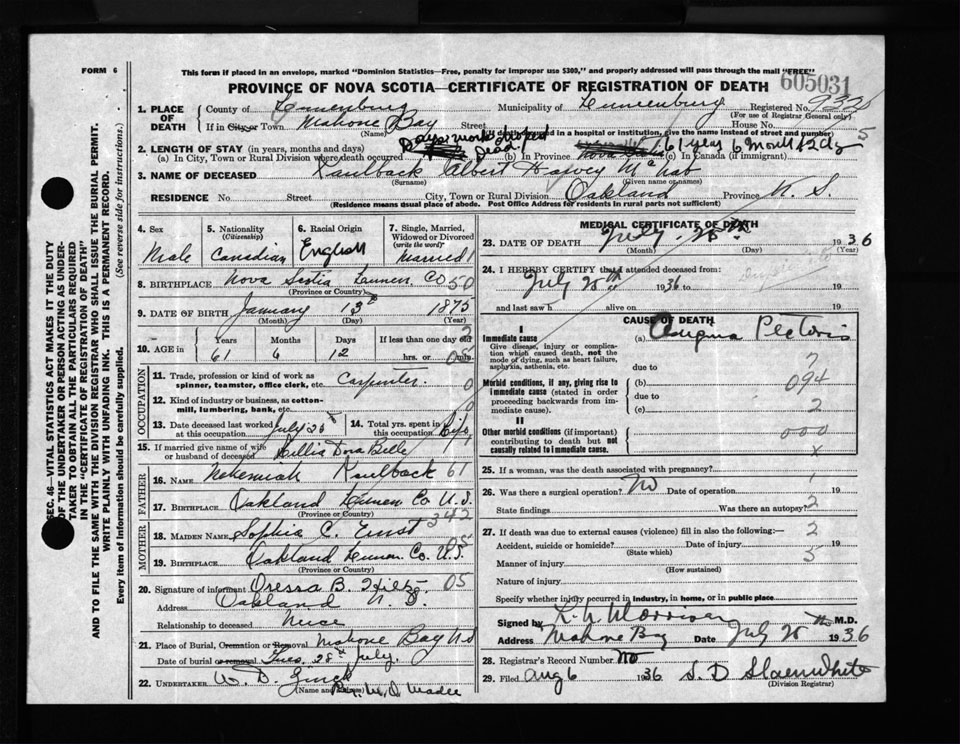 FORM 6
This form if placed in an envelope, marked "Dominion Statistics—Free, penalty for improper use $300," and properly addressed will pass through the mail "FREE"
605031
PROVINCE OF NOVA SCOTIA—CERTIFICATE OF REGISTRATION OF DEATH
1. PLACE OF DEATH County of Lunenburg Municipality of Lunenburg Registered No.
(For use of Registrar General only)
If in City or Town Mahone Bay Street House No.
(Name) death occurred in a hospital or institution, give the name instead of street and number)
2. LENGTH OF STAY (in years, months and days) Days work stopped Dead.
(a) In City, Town or Rural Division where death occurred (b) In Province 61 year 6 month 12 dy (c) In Canada (if immigrant)
3. NAME OF DECEASED Kaulback Albert Harvey McNab
(Surname) (Given name or names)
RESIDENCE No Street City, Town or Rural Division Oakland Province N.S.
(Residence means usual place of abode. Post Office Address for residents in rural parts not sufficient)
4. Sex Male
5. Nationality (Citizenship) Canadian
6. Racial Origin English
7. Single, Married, Widowed or Divorced (write the word) Married
8. BIRTHPLACE Nova Scotia Lunen Co 50
(Province or Country)
9. DATE OF BIRTH January 13th 1875
(Month) (Day) (Year)
10. AGE in Years Months Days If less than one day old
61 6 12 hrs. or min.
OCCUPATION
11. Trade, profession or kind of work as spinner, teamster, office clerk, etc. Carpenter.
12. Kind of industry or business, as cotton-mill, lumbering, bank, etc.
13. Date deceased last worked at this occupation July 25th
14. Total yrs. spent in this occupation Life
15. If married give name of wife or husband of deceased Lillia Dora Belle
FATHER
16. NAME Nehemiah Kaulback 61
17. BIRTHPLACE Oakland Lunen Co N.S.
(Province or Country)
MOTHER
342
18. MAIDEN NAME Sophia C. Ernst
19. BIRTHPLACE Oakland Lunen. Co. N.S.
(Province or Country)
20. Signature of informant Oressa B. Hiltz 05
Address Oakland N.S.
Relationship to deceased Niece
21. Place of Burial, Cremation or Removal Mahone Bay N.S
Date of burial or removal Tues. 28th July.
22. UNDERTAKER W. D. Zinck
(Name and Address)
MEDICAL CERTIFICATE OF DEATH
23. DATE OF DEATH July 25th 1936
(Month) (Day) (Year)
24. I HEREBY CERTIFY that I attended deceased from:
July 25th 1936 to 19
and last saw h alive on 19
CAUSE OF DEATH
I
Immediate cause
Give disease, injury or complication which caused death, not the mode of dying, such as heart failure, asphyxia, asthenia, etc.
(a) Angina Pectoris
due to
Morbid conditions, if any, giving rise to immediate cause (stated in order proceeding backwards from immediate cause).
(b) 094
due to
(c) 2
II
Other morbid conditions (if important) contributing to death but not causally related to immediate cause.
000
25. If a woman, was the death associated with pregnancy?
26. Was there a surgical operation? No Date of operation 19
State findings Was there an autopsy? 2
27. If death was due to external causes (violence) fill in also the following:— 2
Accident, suicide or homicide? Date of injury 19
(State which)
Manner of injury
(How sustained)
Nature of injury
Specify whether injury occurred in industry, in home, or in public place
Signed by M.D.
Address Mahone Bay Date July 25th 1936
28. Registrar's Record Number
29. Filed Aug 6 1936 S. D Slauenwhite
(Division Registrar)
SEC. 46—VITAL STATISTICS ACT MAKES IT THE DUTY
OF THE UNDERTAKER OR PERSON ACTING AS UNDER-
TAKER TO OBTAIN ALL THE PARTICULARS REQUIRED
IN THE "CERTIFICATE OF REGISTRATION OF DEATH"
AND TO FILE THE SAME WITH THE DIVISION REGISTRAR WHO SHALL ISSUE THE BURIAL PERMIT.
WRITE PLAINLY WITH UNFADING INK. THIS IS A PERMANENT RECORD.
Every item of information should be carefully supplied. (See reverse side for instructions.)